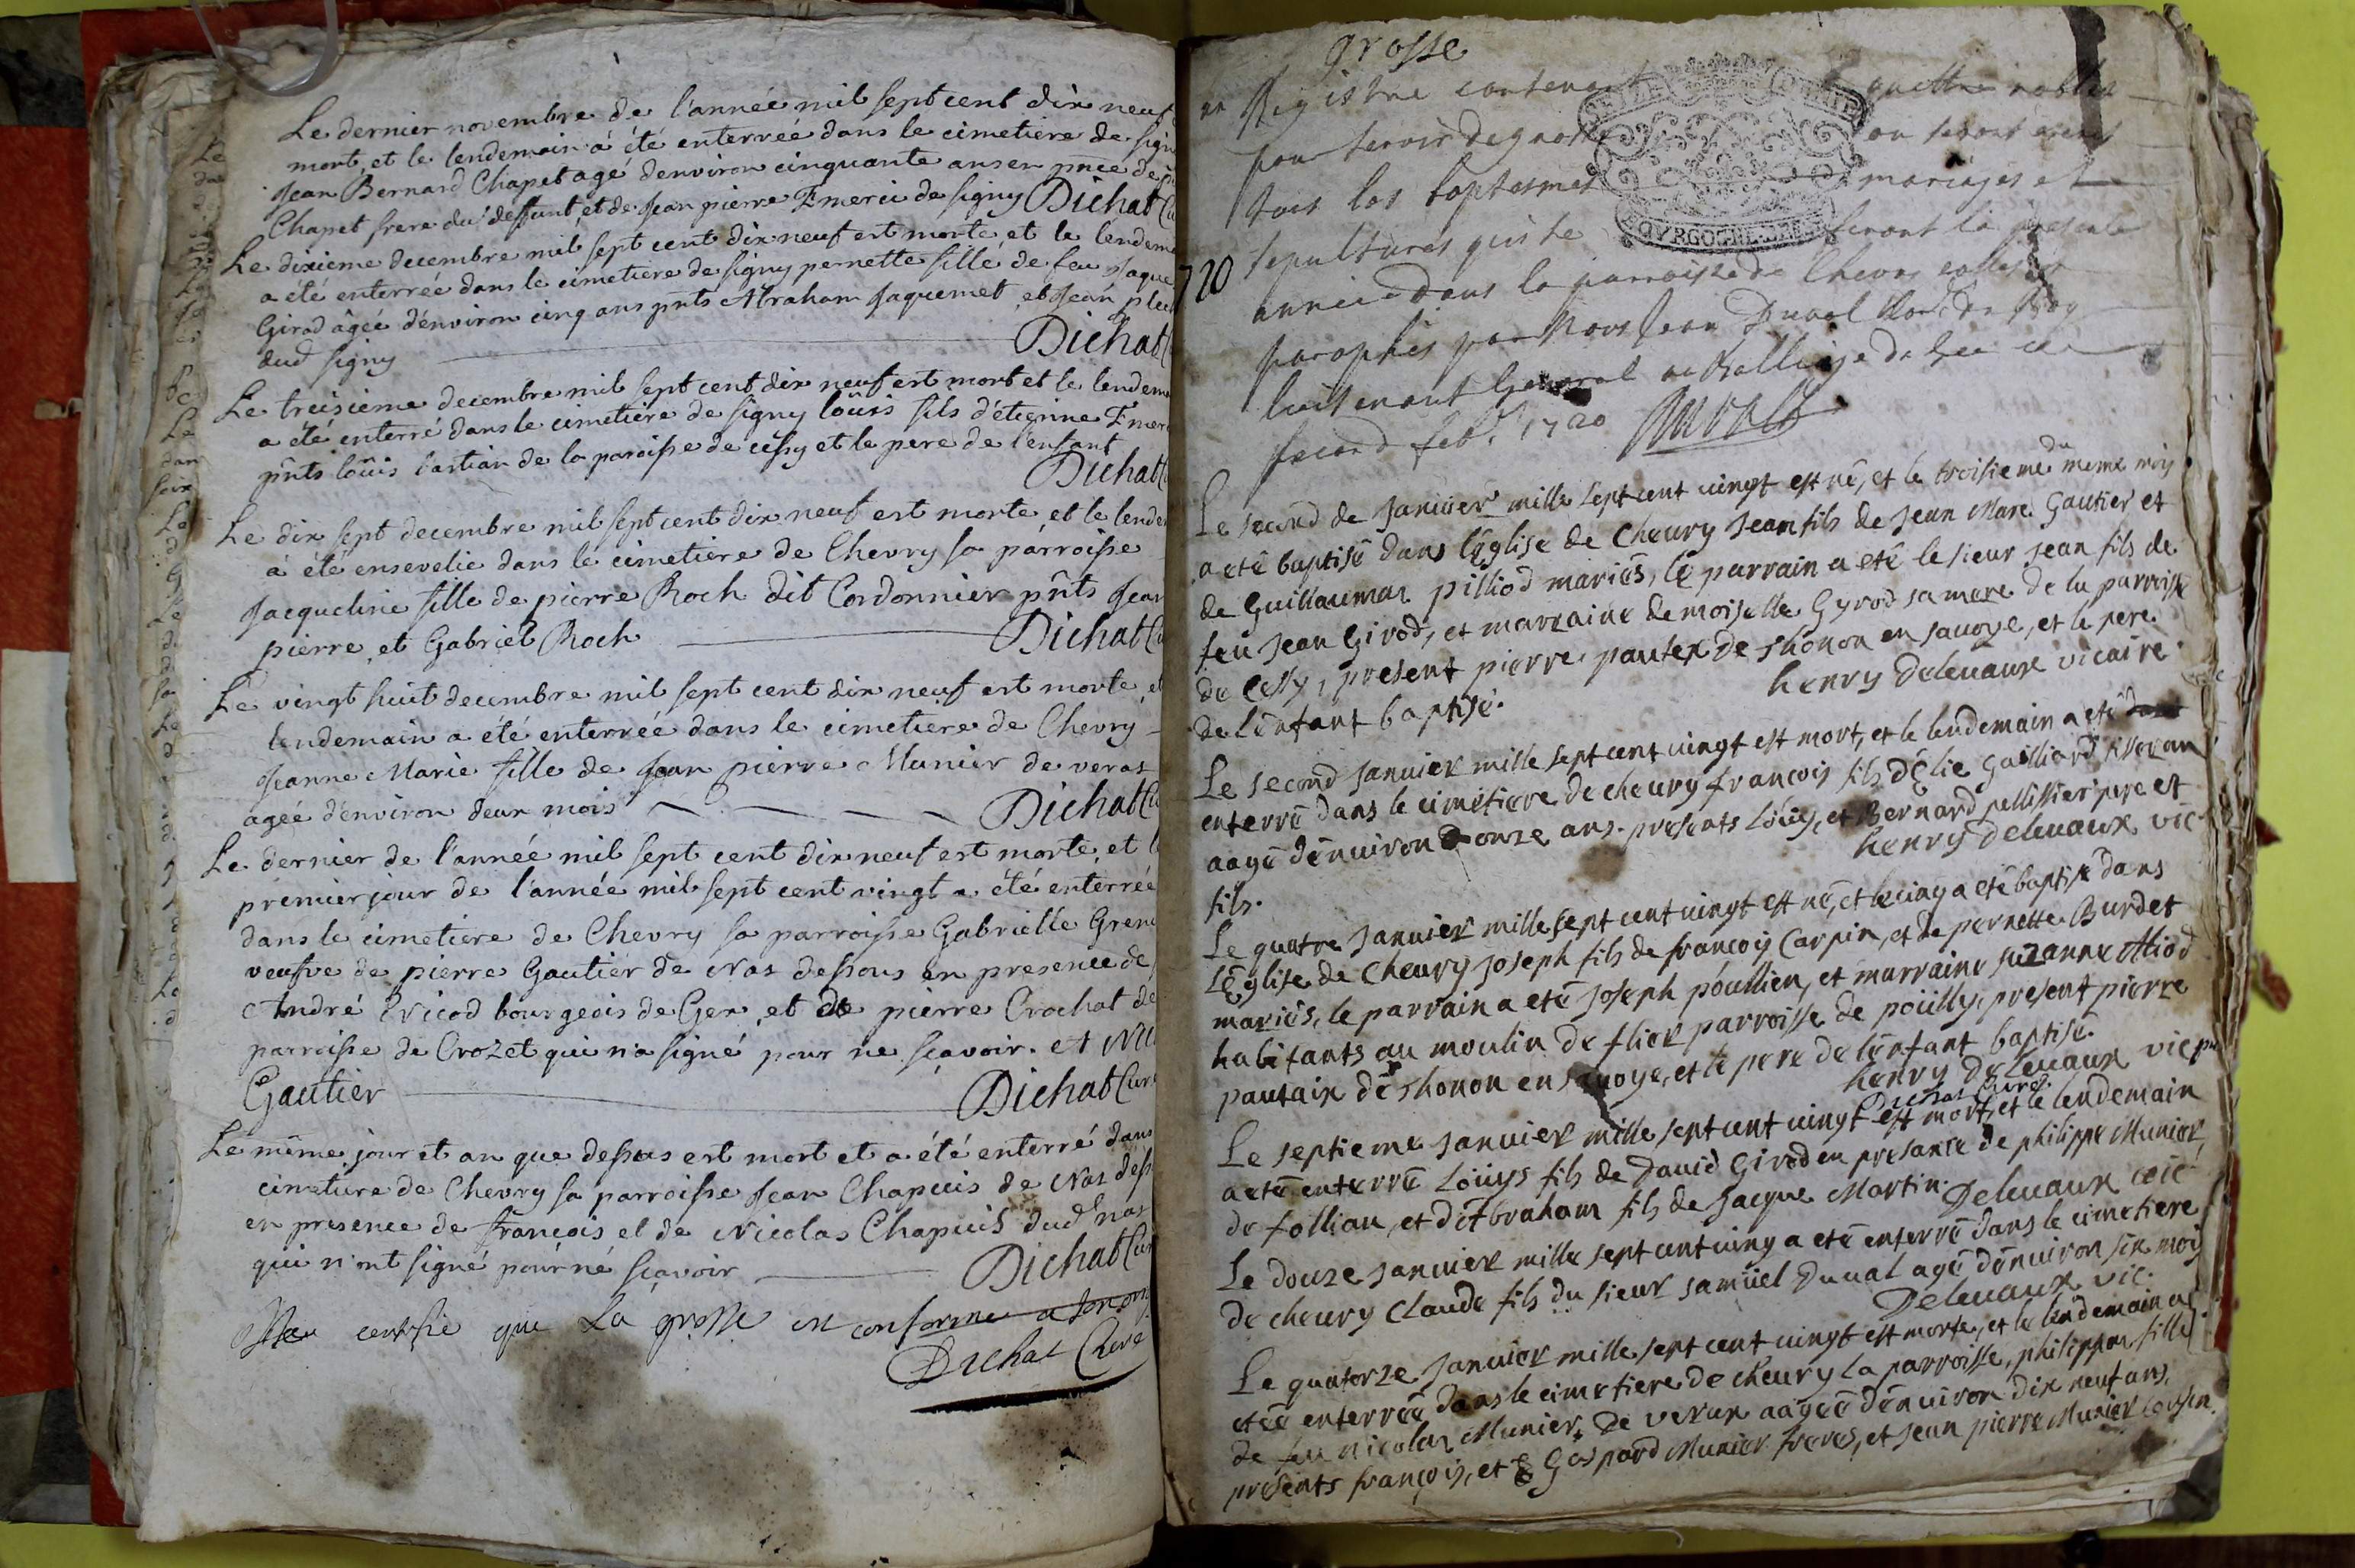 Le dernier novembre de l'année mil sept cent dix neuf
mort, et le lendemain a été enterré dans le cimetiere de sign
Jean Bernard Chapet agé denviron cinquante ans en pnce de
Chapet frere du deffunt, et de Jean pierre Emeri de signy Dichat Cu
Le dixieme decembre mil sept cent dix neuf est morte et le lendem
a été enterrée dans le cimetiere de signy pernette fille de feu Jaque
Girod âgée d'environ cinq ans pnts Abraham Jaquemet, et Jean
dud signy Dichat C
Le treisieme decembre mil sept cent dix neuf est mort et le lendem
a été enterré dans le cimetiere de signy loüis fils d'étienne Emer
pnts loüis lastian de la paroisse de cessy et le pere de l'enfant
Dichat C
Le dix sept decembre mil sept cent dix neuf est morte, et le lende
à été ensevelie dans le cimetiere de Chevry sa parroisse
Jacqueline fille de pierre Roch dit Cordonnier pnts Jean
pierre, et Gabriel Roch Dichat Cu
Le vingt huit decembre mil sept cent dix neuf est morte, et
lendemain a été enterrée dans le cimetiere de Chevry
Jeanne Marie fille de Jean pierre Munier de veras
agée d'environ deux mois Dichat Cu
Le dernier de l'année mil sept cent dix neuf est morte, et l
premier jour de l'année mil sept cent vingt a été enterrée
dans le cimetiere de Chevry sa parroisse Gabrielle Gren
veufve de pierre Gautier de Nas dessous en presence de
André Nicod bourgeois de Gex, et de pierre Crochat de
parroisse de Crozet qui n'a signé pour ne sçavoir. et Nic
Gautier Dichat Cur
Le même jour et an que dessus est mort et a été enterré dans
cimetiere de Chevry sa parroisse Jean Chapuis de Nas dess
en presence de françois et de Nicolas Chapuis dud nas
qui n'ont signé pour né sçavoir Dichat Cur
certifie que La grosse est conforme a son
Dichat Curé
grosse
Registre contenant quattre
pour servir de grosse ou seront
tous les baptesmes mariages et
sepultures qui se feront la presente
720
année dans la parroisse de Chevry
paraphés par Nous Jean Duval
lieutenant General au Balliage de Gex ce
second feb. 1720 Duval
OVRGOGNE
Le second de Januier mille sept cent uingt est né, et le troisieme du meme mois
a eté baptisé dans l'église de Cheury Jean fils de Jean Marc Gautier et
de Guillaumaz pilliod mariés, le parrain a eté le sieur Jean fils de
feu Jean Girod, et marraine demoiselle Gyrod sa mere de la parroisse
de Cessy, present pierre pautex de thonon en sauoye, et le pere
de l'enfant baptisé. henry Deleuaux vicaire
Le second Januier mille sept cent uingt est mort, et le lendemain a eté
enterré dans le cimetiere de cheury francois fils d'élie Gailliard
aagé denuiron onze ans. presents Loüis, et Bernard pellissier pere et
fils. henry Deleuaux vic
Le quatre Januier mille sept cent uingt est né, et le cinq a eté baptisé dans
l'église de Cheury Joseph fils de francois Carpin, et de pernette Burdet
mariés, le parrain a eté Joseph poullien, et marraine suzanne Miod
habitants au moulin de fliex parroisse de poüilly, present pierre
pautaix de thonon en sauoye, et le pere de l'enfant baptisé.
henry Deleuaux vic
Dichat Curé.
Le septieme Januier mille sept cent uingt est mort, et le lendemain
a eté enterré Loüys fils de Dauid Girod en presance de philippe Munier,
de follian, et d'Abraham fils de Jacque Martin. Deleuaux vic
Le douze Januier mille sept cent uing a eté enterré dans le cimetiere
de cheury Claude fils du sieur samüel Duual agé denuiron six mois
Deleuaux vic.
Le quatorze Januier mille sept cent uingt est morte, et le lendemain a
etée enterrée dans le cimetiere de cheury la parroisse, philippaz fille
de feu nicolaz Munier, de veraz aagée denuiron dix neuf ans,
presents françois, et Gaspard Munier freres, et Jean pierre Munier cousin.